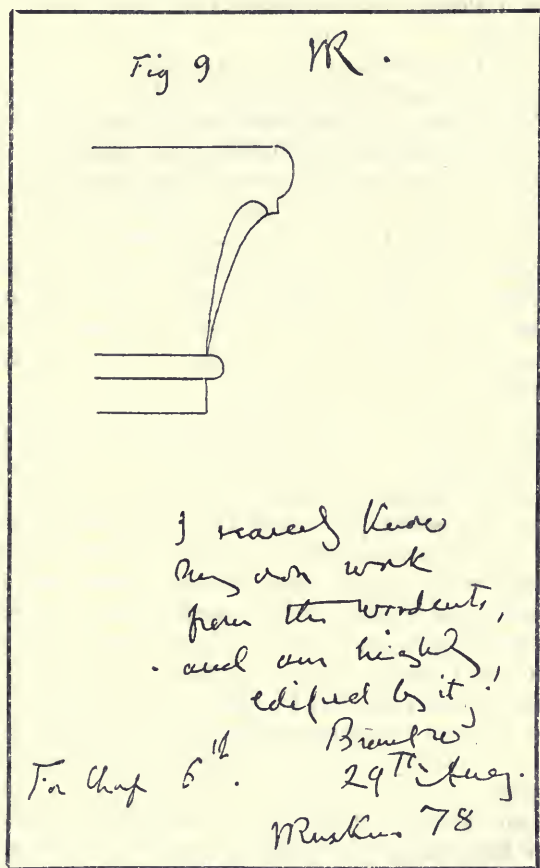 Fig 9 JR.
I scarcely know
my own work
from the woodcuts,
and am highly
edified by it!
Brantwood
29th Aug.
For Chap 6th.
JRuskin 78